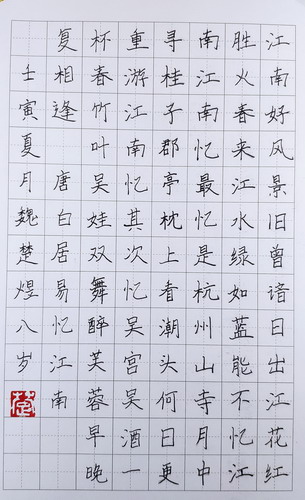 江南好风景旧曾谙日出江花红
胜火春来江水绿如蓝能不忆江
南江南忆最忆是杭州山寺月中
寻桂子郡亭枕上看潮头何日更
重游江南忆其次忆吴宫吴酒一
杯春竹叶吴娃双舞醉芙蓉早晚
复相逢 唐白居易忆江南
壬寅夏月魏楚煜八岁